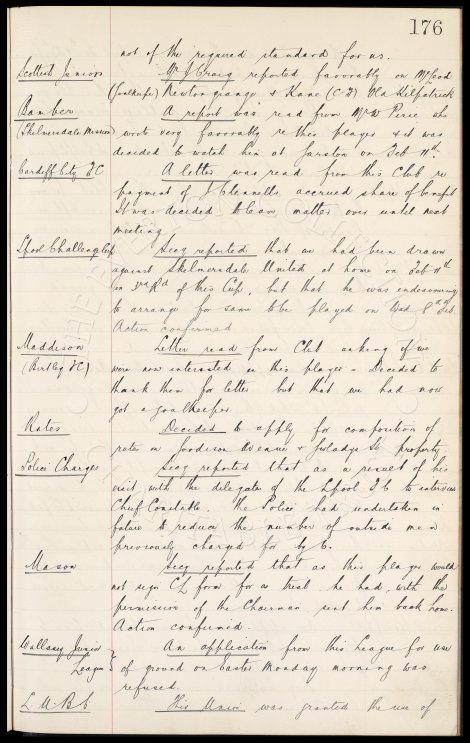 176
not of the required standard for us.
Scottish Juniors Mr J Craig reported favorably on McLeod
(Goalkeeper) Newtongrange & Kane (C.F) Old Kilpatrick
Bamber A report was read from Mr W Peirce who
(Skelmersdale Mission) wrote very favorably re this player & it was
decided to watch him at Garston on Feb 11th.
Cardiff City FC A letter was read from this Club re
payment of J Clennells accrued share of benefit
It was decided to leave matter over until next
meeting.
Lpool Challenge Cup Secy reported that we had been drawn
against Skelmersdale United at home on Feb 11th
in 3rd Rd of this Cup, but that he was endeavouring
to arrange for same to be played on Wed 8th Feb.
Action confirmed
Maddison Letter read from Club asking if we
were now interested in this player - Decided to
thank them for letter but that we had now
got a goalkeeper
Rates Decided to apply for composition of
rates on Goodison Avenue & Gwladys St property.
Police Charges Secy reported that as a result of his
visit with the delegate of the Lpool FC to interview
Chief Constable. The Police had undertaken in
future to reduce the number of outside men
previously charged for by 6.
Mason Secy reported that as this player would
not sign CL form for a trial he had, with the
permission of the Chairman sent him back home.
Action confirmed.
Wallasey Junior An application from this League for use
League of ground on Easter Monday morning was
refused.
L.U.B.C This Union was granted the use of